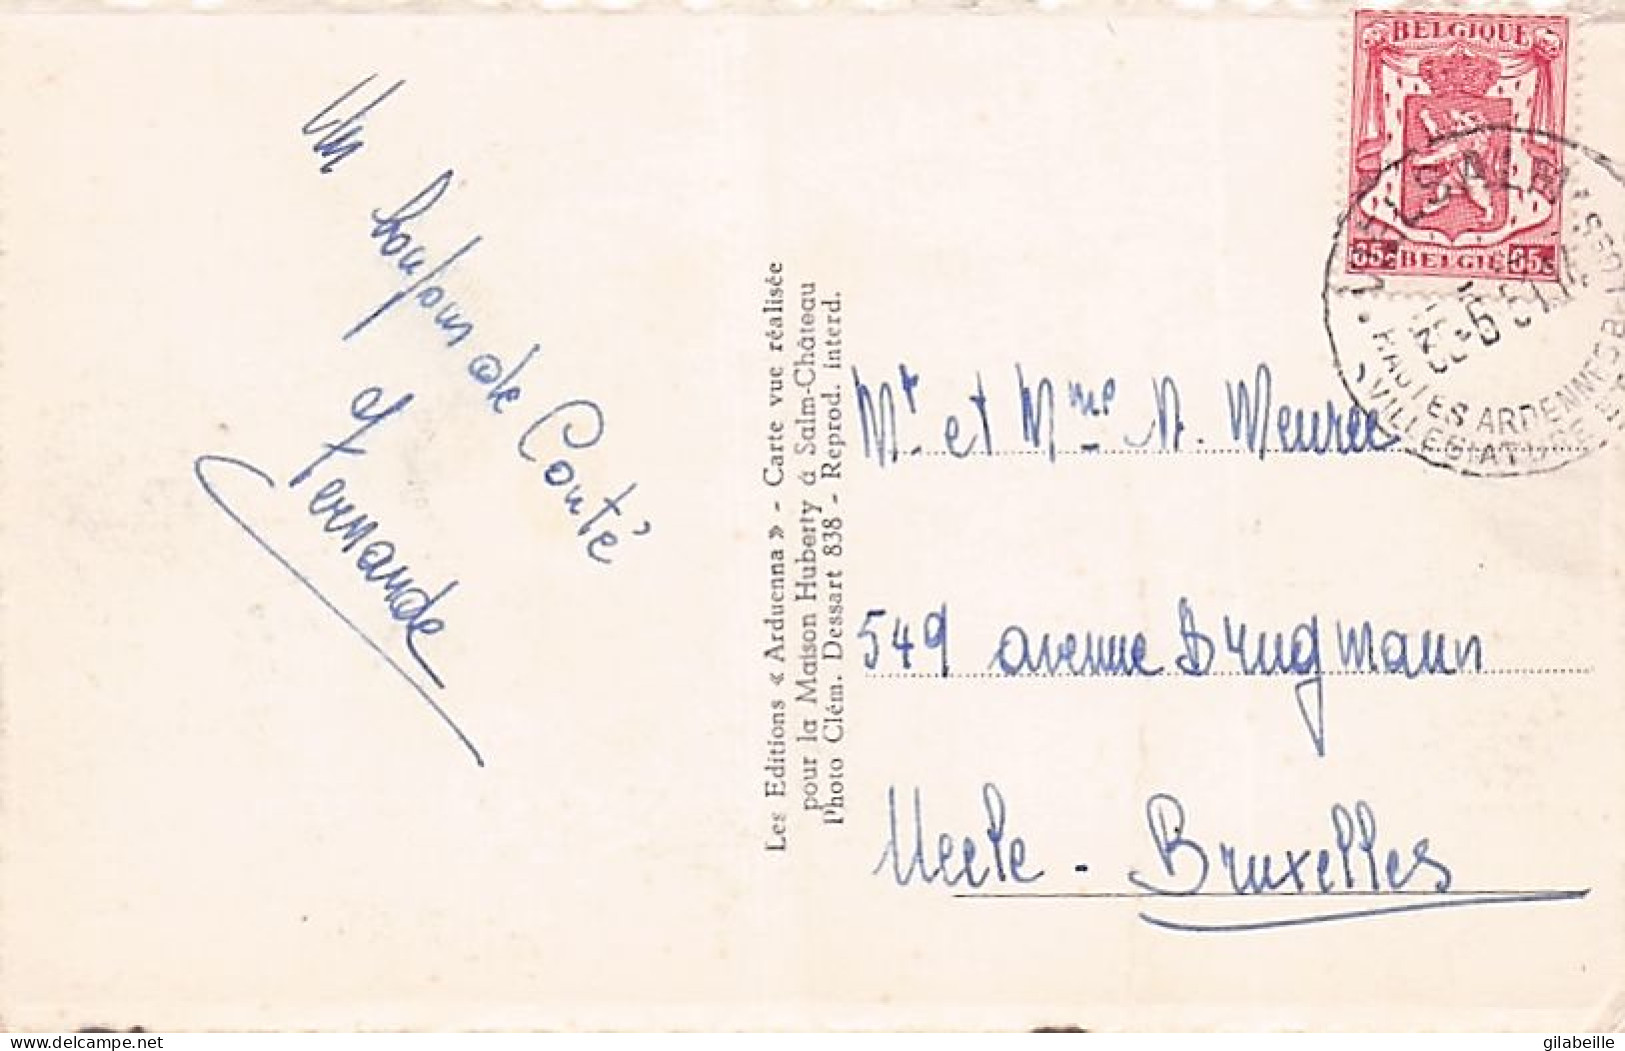 Un bonjour de Conté
et Fernande
Les Editions « Arduenna » - Carte vue réalisée
pour la Maison Huberty à Salm-Château
Photo Clém. Dessart 838 - Reprod. interd.
BELGIQUE
65c BELGIË 65c
VIELSALM
HAUTES ARDENNES BELGES
VILLEGIATURE
Mr et Mme N. Meuree
549 avenue Brugmann
Uccle - Bruxelles
gilabeille